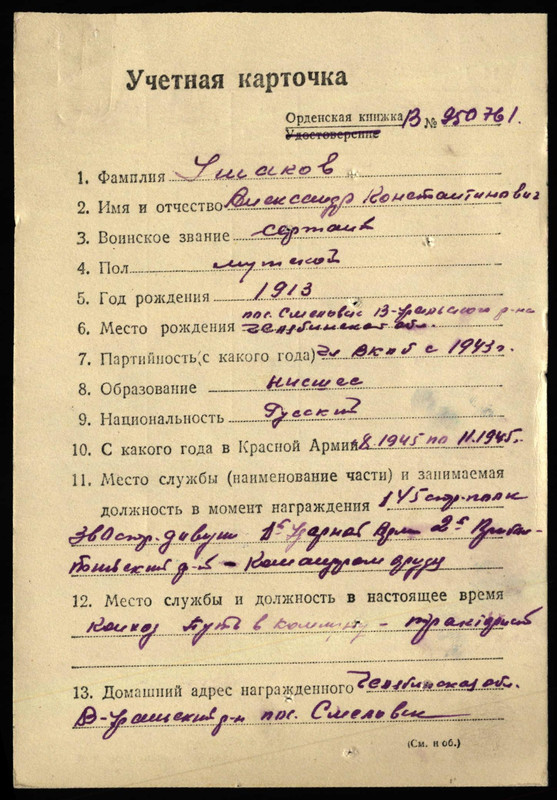 Учетная карточка
Орденская книжка В № 950761.
Удостоверение
1. Фамилия Ушаков
2. Имя и отчество Александр Константинович
3. Воинское звание сержант
4. Пол мужской
5. Год рождения 1913
пос. Смеловск В-Уральского р-на
6. Место рождения Челябинская обл.
7. Партийность (с какого года) Чл ВКПб с 1943 г.
8. Образование низшее
9. Национальность Русский
10. С какого года в Красной Армии 1945 по 11.1945г.
11. Место службы (наименование части) и занимаемая
должность в момент награждения 145 стр. полк
стр. дивизии 1й Ударной Арм 2й Прибал-
тийский ф-т – Командиром отдел
12. Место службы и должность в настоящее время
колхоз Путь в коммуну – тракторист
13. Домашний адрес награжденного Челябинская обл.
В-Уральский р-н пос. Смеловск
(См. н об.)